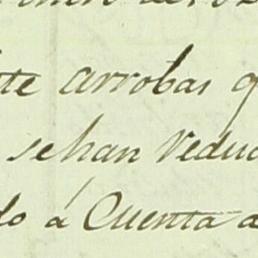 tte arrobas q
sehan reduc
do á Cuenta a